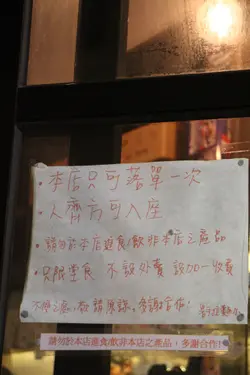 • 本店只可落單一次
• 人齊方可入座
• 請勿於本店進食/飲非本店之產品
• 只限堂食 不設外賣 設加一收費
不便之處，敬請原諒，多謝合作！
請勿於本店進食/飲非本店之產品，多謝合作！